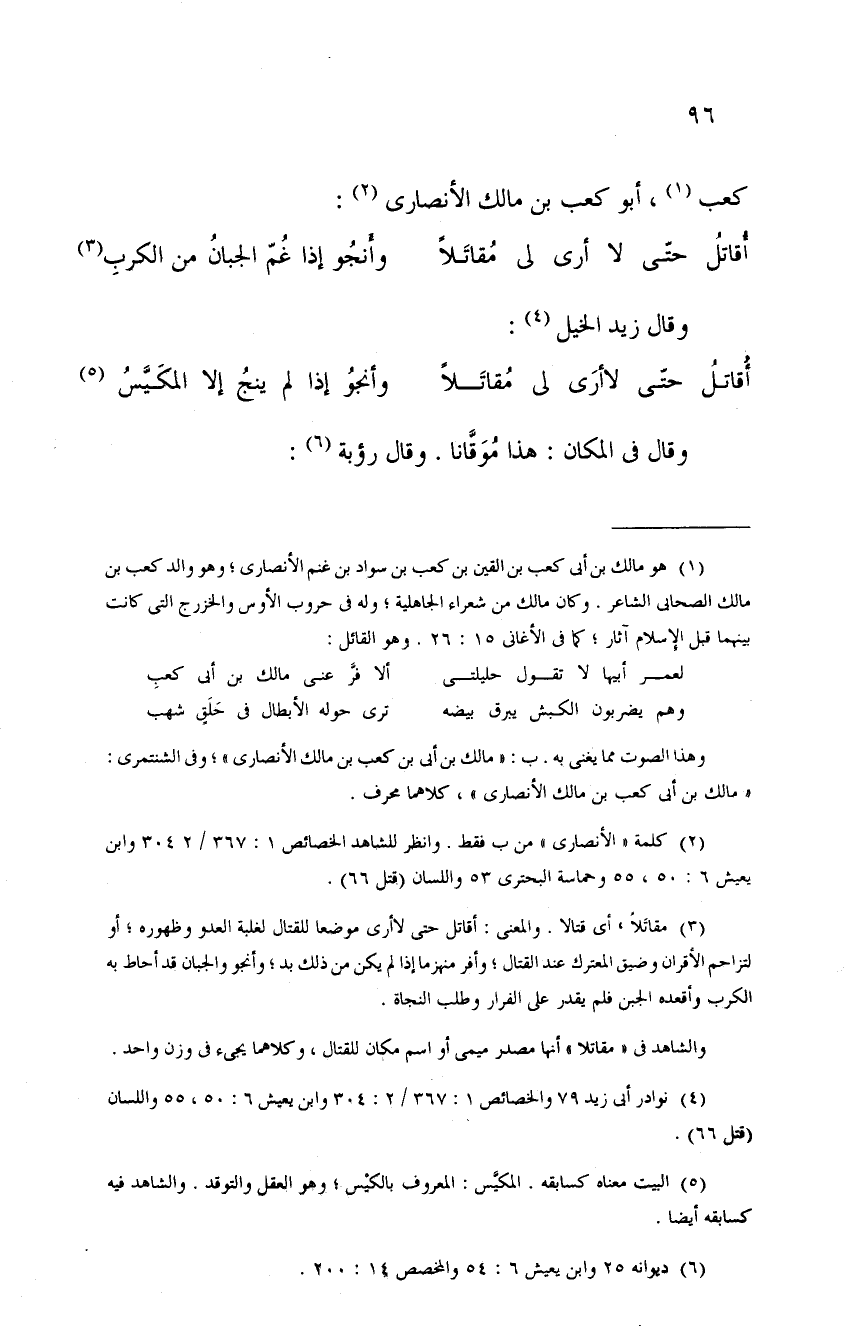 ٩٦
كعب (١) ، أبو كعب بن مالك الأنصارى (٢) :
أُقاتلُ حتّى لا أرى لى مُقاتَلاً وأَنجُو إذا غُمّ الجبانُ من الكربِ (٣)
وقال زيد الخيل (٤) :
أُقاتلُ حتّى لاأرَى لى مُقاتَلاً وأنجوُ إذا لم ينجُ إلا المكَيَّسُ (٥)
وقال فى المكان : هذا مُوَقَّانا . وقال رؤبة (٦) :
(١) هو مالك بن أبى كعب بن القين بن كعب بن سواد بن غنم الأنصارى ؛ وهو والد كعب بن
مالك الصحابى الشاعر . وكان مالك من شعراء الجاهلية ؛ وله فى حروب الأوس والخزرج التى كانت
بينهما قبل الإسلام آثار ؛ كما فى الأغانى ١٥ : ٢٦ . وهو القائل :
لعمر أبيها لا تقول حليلتى ألا فرَّ عنى مالك بن أبى كعبِ
وهم يضربون الكبش يبرق بيضه ترى حوله الأبطال فى حَلَقٍ شهب
وهذا الصوت مما يغنى به . ب : « مالك بن أبى بن كعب بن مالك الأنصارى » ؛ وفى الشنتمرى :
« مالك بن أبى كعب بن مالك الأنصارى » ، كلاهما محرف .
(٢) كلمة « الأنصارى » من ب فقط . وانظر للشاهد الخصائص ١ : ٣٦٧ / ٢ ٣٠٤ وابن
يعيش ٦ : ٥٠ ، ٥٥ وحماسة البحترى ٥٣ واللسان (قتل ٦٦) .
(٣) مقاتَلاً ، أى قتالا . والمعنى : أقاتل حتى لاأرى موضعا للقتال لغلبة العدو وظهوره ؛ أو
لتزاحم الأقران وضيق المعترك عند القتال ؛ وأفر منهزما إذا لم يكن من ذلك بد ؛ وأنجو والجبان قد أحاط به
الكرب وأقعده الجبن فلم يقدر على الفرار وطلب النجاة .
والشاهد فى « مقاتلا » أنها مصدر ميمى أو اسم مكان للقتال ، وكلاهما يجىء فى وزن واحد .
(٤) نوادر أبى زيد ٧٩ والخصائص ١ : ٣٦٧ / ٢ : ٣٠٤ وابن يعيش ٦ : ٥٠ ، ٥٥ واللسان
(قتل ٦٦) .
(٥) البيت معناه كسابقه . المكيَّس : المعروف بالكيْس ؛ وهو العقل والتوقد . والشاهد فيه
كسابقه أيضا .
(٦) ديوانه ٢٥ وابن يعيش ٦ : ٥٤ والمخصص ١٤ : ٢٠٠ .